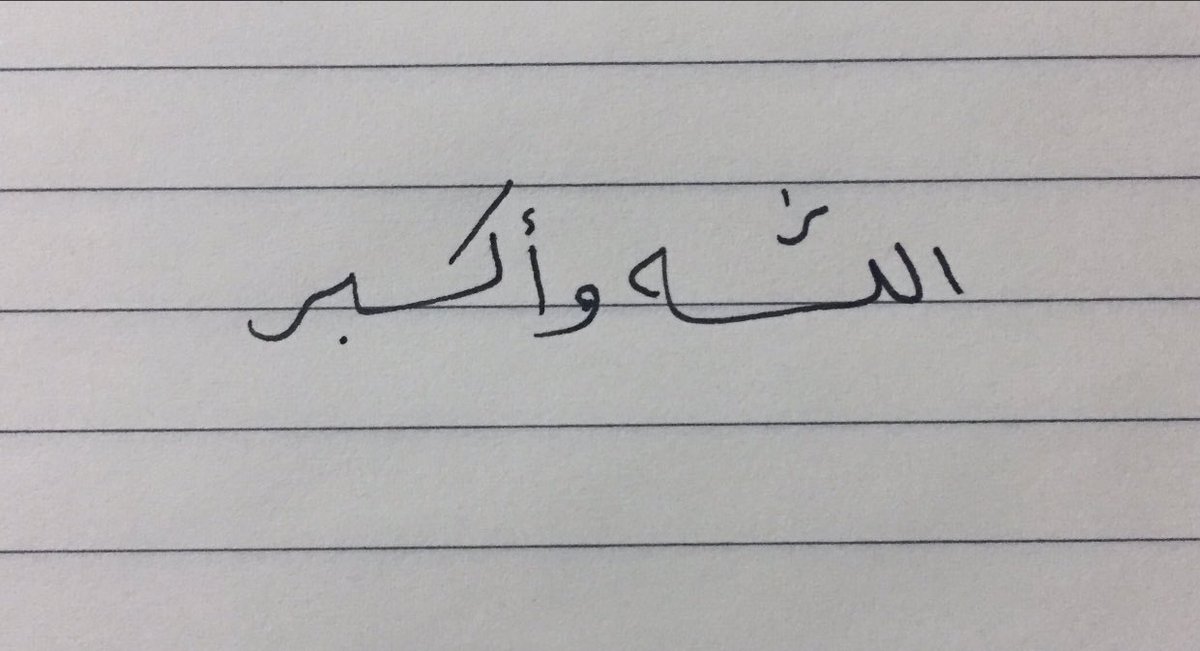 اللّٰه وأكبر